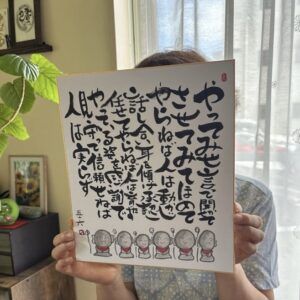 やってみせ言って聞かせ
させてみてほめて
やらねば人は動かじ
話し合い耳を傾け承認し
任せてやらねば人は育たず
やっている姿を感謝で
見守って信頼せねば
人は実らず